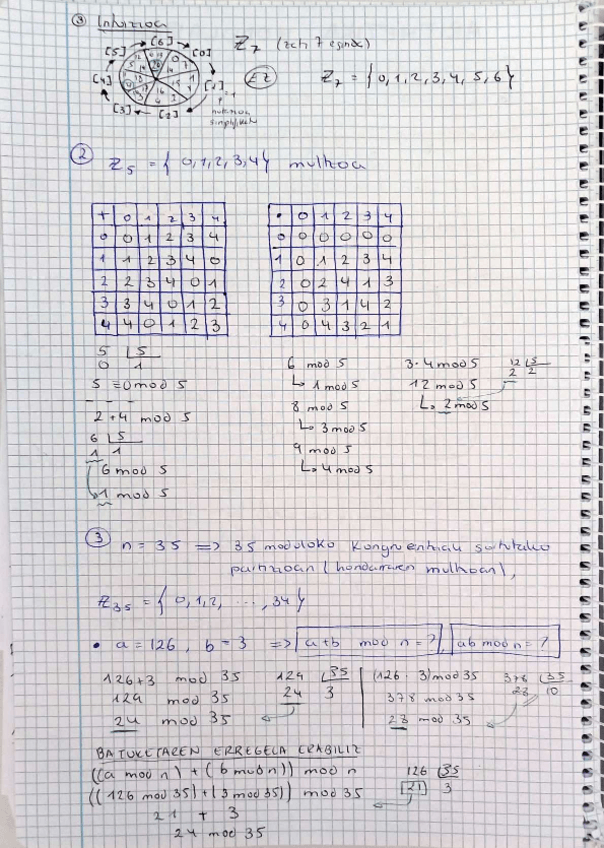 ③ Intuizioa
[6] [0] [1] [2] [3] [4] [5]
ℤ₇ (zati 7 eginda)
ℤ₇ = { 0, 1, 2, 3, 4, 5, 6 }
② ℤ₅ = { 0, 1, 2, 3, 4 } multzoa
+ 0 1 2 3 4
0 0 1 2 3 4
1 1 2 3 4 0
2 2 3 4 0 1
3 3 4 0 1 2
4 4 0 1 2 3
• 0 1 2 3 4
0 0 0 0 0 0
1 0 1 2 3 4
2 0 2 4 1 3
3 0 3 1 4 2
4 0 4 3 2 1
5 |5
0 1
5 ≡ 0 mod 5
2+4 mod 5
6 |5
1 1
6 mod 5
1 mod 5
6 mod 5
↳ 1 mod 5
8 mod 5
↳ 3 mod 5
9 mod 5
↳ 4 mod 5
3·4 mod 5
12 mod 5
↳ 2 mod 5
12 |5
2 2
③ n = 35 => 35 moduloko kongruentziak sortutako
partizioan (hondarren multzoan),
ℤ₃₅ = { 0, 1, 2, ..., 34 }
• a = 126, b = 3 => a+b mod n = ? , ab mod n = ?
126+3 mod 35
129 mod 35
24 mod 35
129 |35
24 3
(126 · 3) mod 35
378 mod 35
28 mod 35
378 |35
28 10
BATUKETAREN ERREGELA ERABILIZ
((a mod n) + (b mod n)) mod n
((126 mod 35) + (3 mod 35)) mod 35
21 + 3
24 mod 35
126 |35
21 3